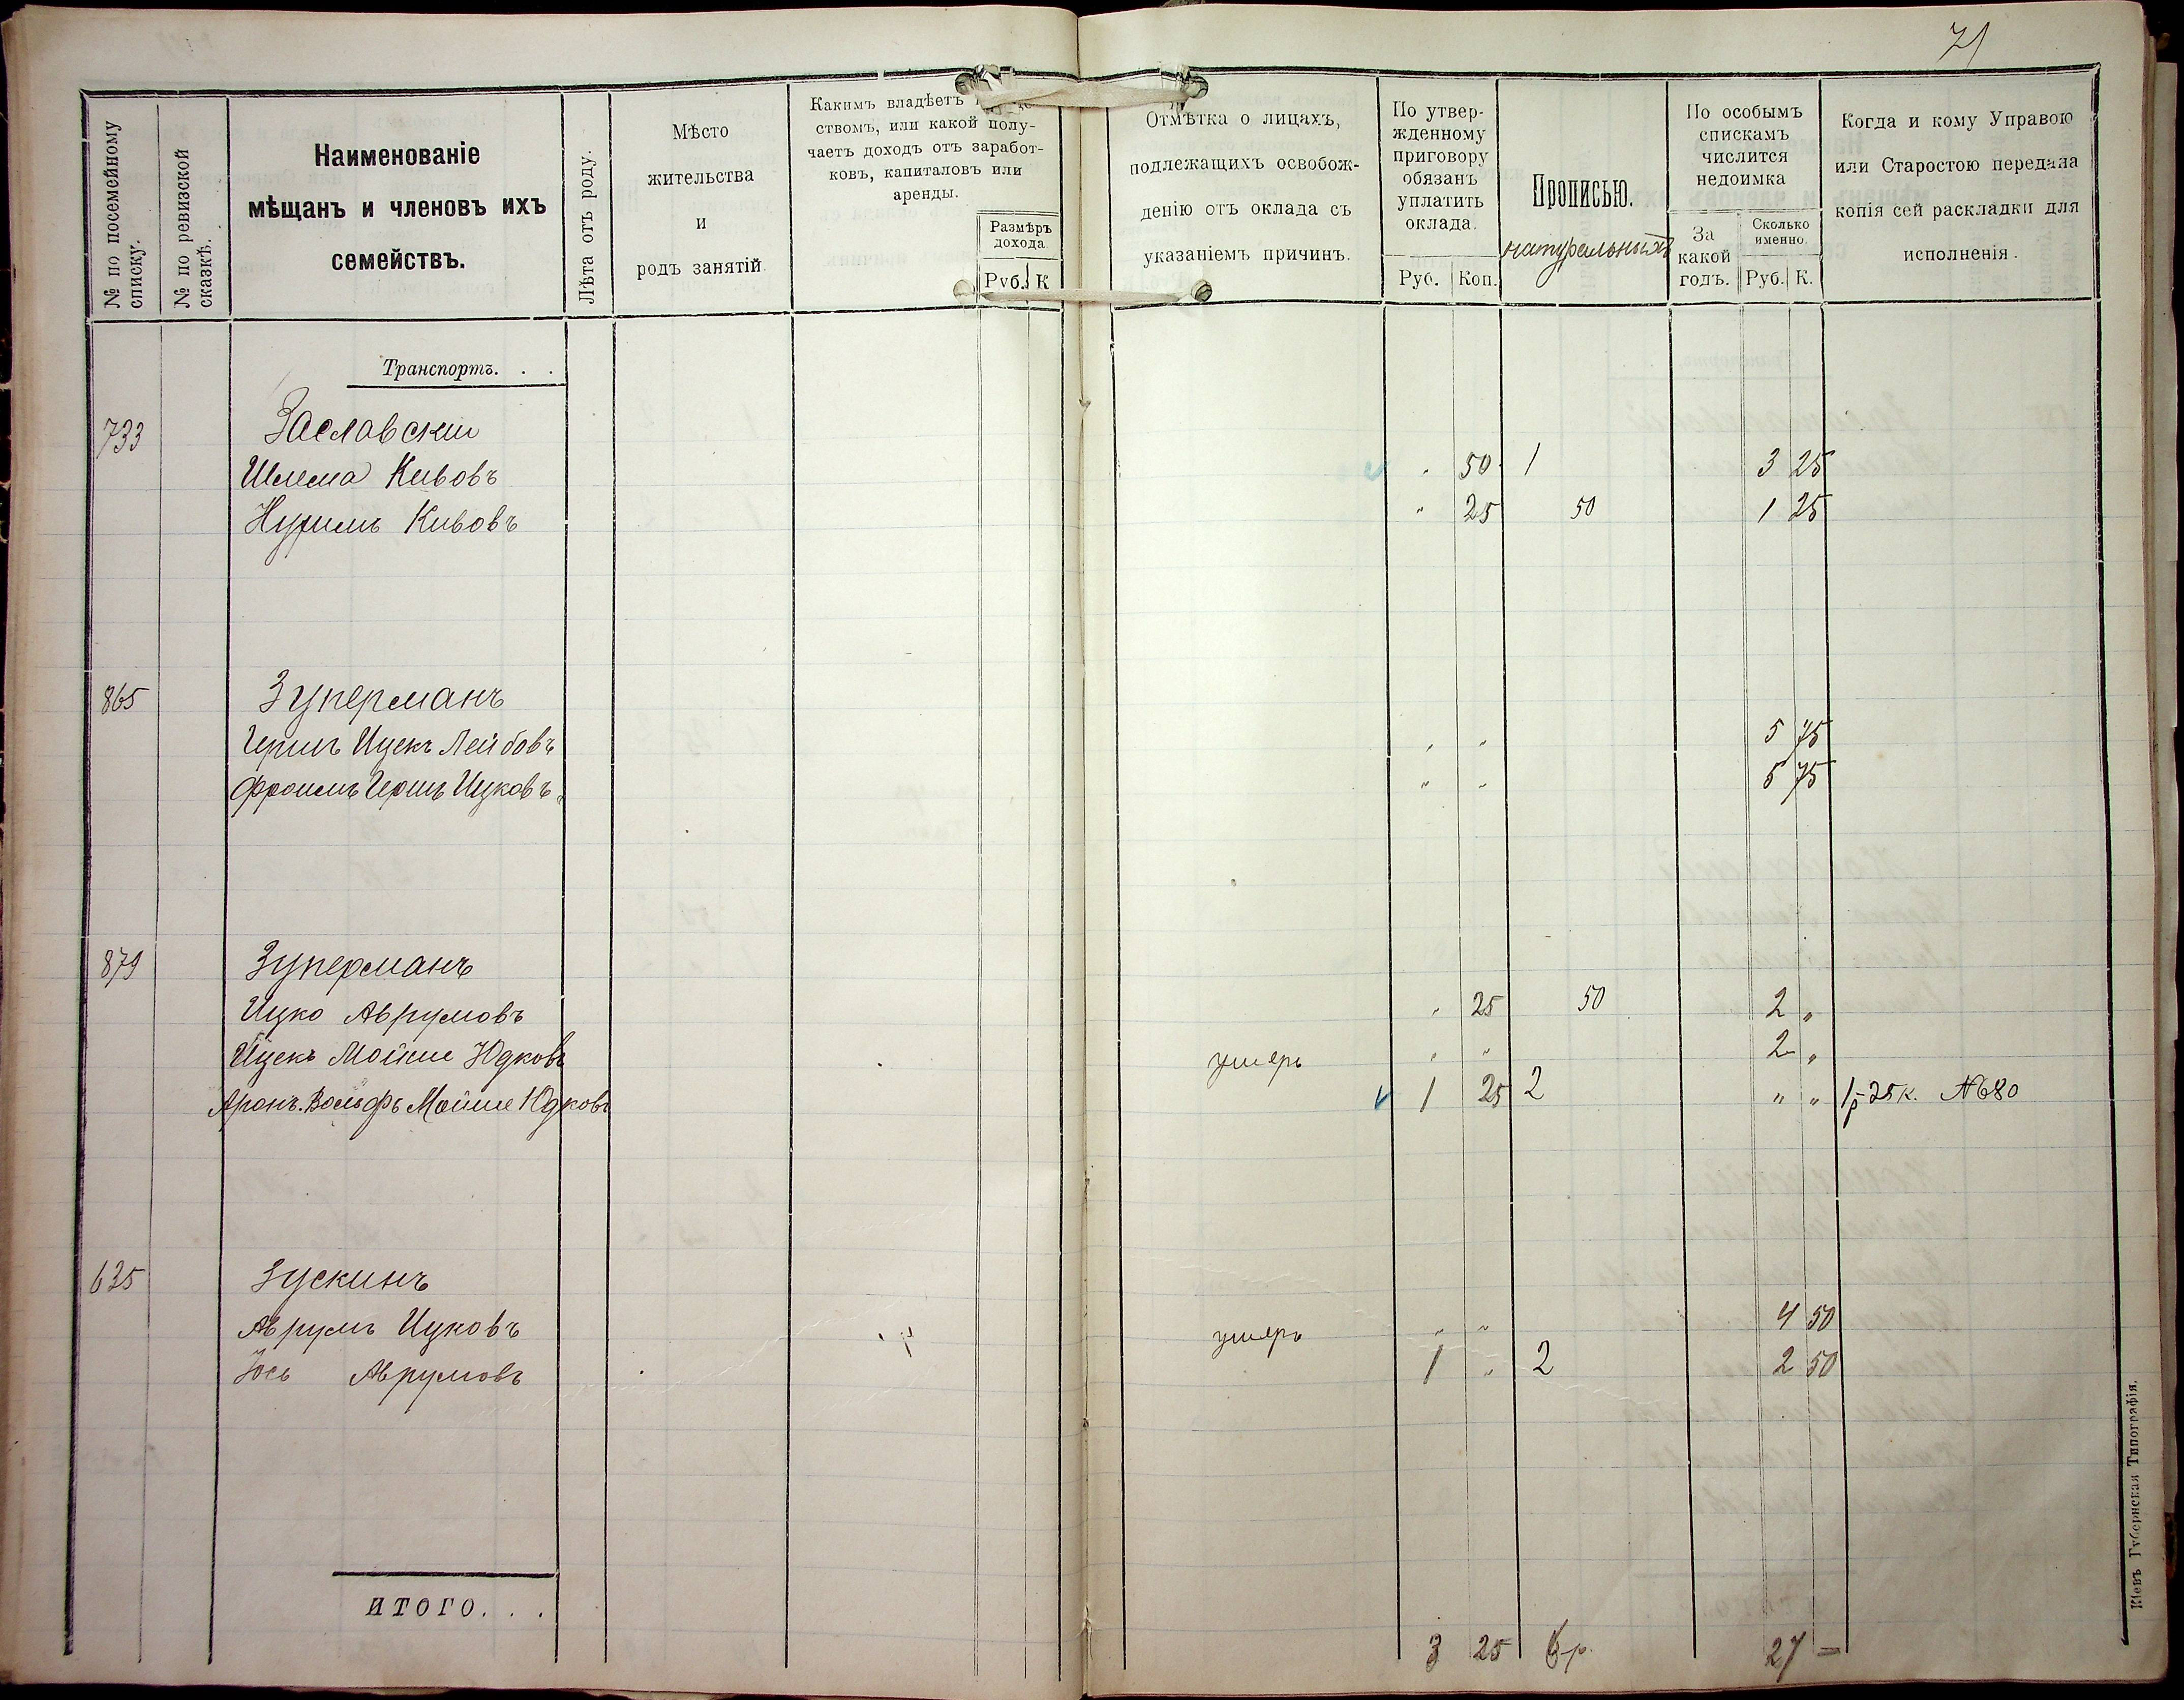 71
№ по посемейному списку.
№ по ревизской сказкѣ.
Наименованіе
мѣщанъ и членовъ ихъ
семействъ.
Лѣта отъ роду.
Мѣсто
жительства
и
родъ занятій.
Какимъ владѣетъ
ствомъ, или какой полу-
чаетъ доходъ отъ заработ-
ковъ, капиталовъ или
аренды.
Размѣръ
дохода.
Руб. К
Отмѣтка о лицахъ,
подлежащихъ освобож-
денію отъ оклада съ
указаніемъ причинъ.
По утвер-
жденному
приговору
обязанъ
уплатить
оклада.
Руб. Коп.
Прописью.
натуральныхъ
По особымъ
спискамъ
числится
недоимка
За
какой
годъ.
Сколько
именно.
Руб. К.
Когда и кому Управою
или Старостою передана
копія сей раскладки для
исполненія.
Транспортъ. . .
733 Заславскій
Шлема Кивовъ " 50 1 3 25
Нухимъ Кивовъ " 25 50 1 25
865 Зуперманъ
Гершъ Ицекъ Лейбовъ " " 5 75
Фроимъ Гершъ Ицковъ " " 5 75
879 Зуперманъ
Ицко Аврумовъ " 25 50 2 "
Ицекъ Мойше Юдковъ умеръ " " 2 "
Аронъ-Вольфъ Мойше Юдковъ 1 25 2 " " 1р-25к. №80
635 Зускинъ
Аврумъ Ицковъ умеръ " " 4 50
Іось Аврумовъ 1 " 2 2 50
ИТОГО. . .
3 25 6р. 27 =
Кіевъ Губернская Типографія.